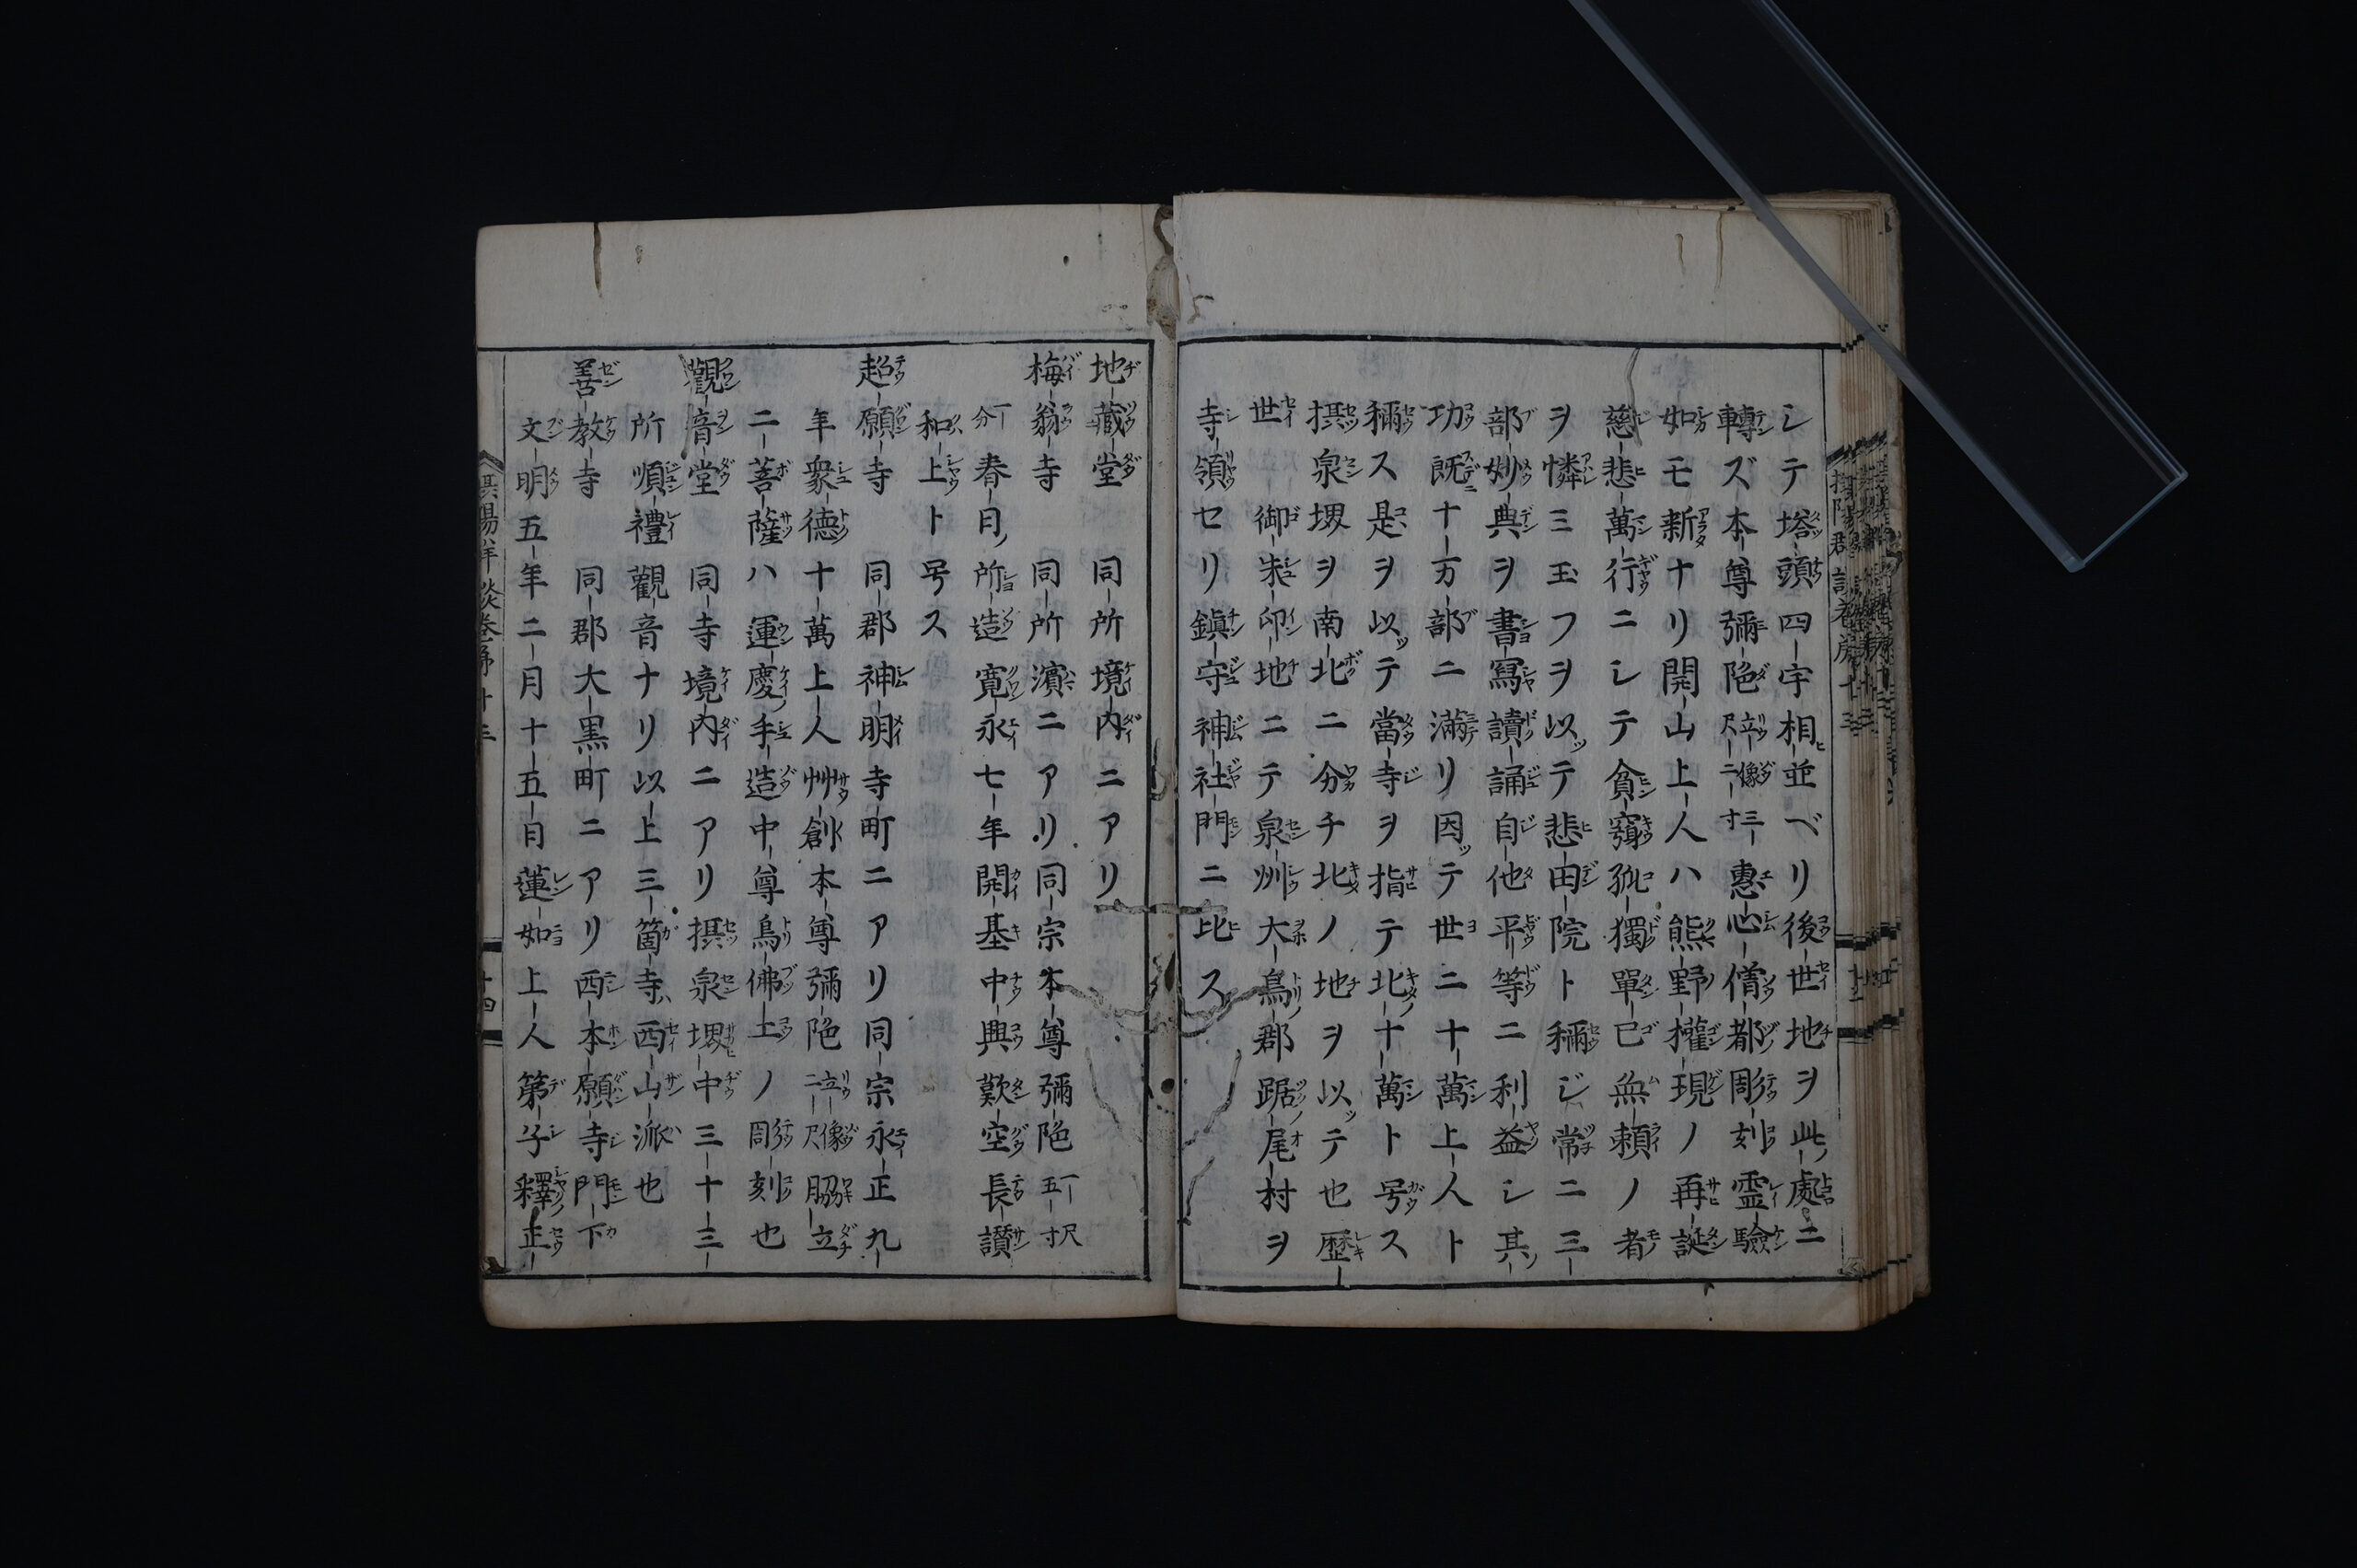 シテ塔頭四宇相並ベリ後世地ヲ此處ニ
轉ズ本尊彌陁立像三尺二寸惠心僧都彫刻霊驗
如モ新ナリ開山上人ハ熊野權現ノ再誕
慈悲萬行ニシテ貪窮孤獨單己無頼ノ者
ヲ憐ミ玉フヲ以テ悲田院ト稱ジ常ニ三
部妙典ヲ書寫讀誦自他平等ニ利益シ其
功既十万部ニ満リ因テ世ニ十萬上人ト
稱ス是ヲ以テ當寺ヲ指テ北十萬ト号ス
摂泉堺ヲ南北ニ分チ北ノ地ヲ以テ也歴
世御朱印地ニテ泉州大鳥郡踞尾村ヲ
寺領セリ鎭守神社門ニ比ス
地藏堂 同所境内ニアリ
梅翁寺 同所濱ニアリ同宗本尊彌陁一尺五寸
一分春日所造寛永七年開基中興歎空長讃
和上ト号ス
超願寺 同郡神明寺町ニアリ同宗永正九
年衆德十萬上人艸創本尊彌陁立像二尺脇立
二菩薩ハ運慶手造中尊鳥佛土ノ周刻也
觀音堂 同寺境内ニアリ摂泉堺中三十三
所順禮觀音ナリ以上三箇寺西山派也
善教寺 同郡大黒町ニアリ西本願寺門下
文明五年二月十五日蓮如上人第子釋正
十四